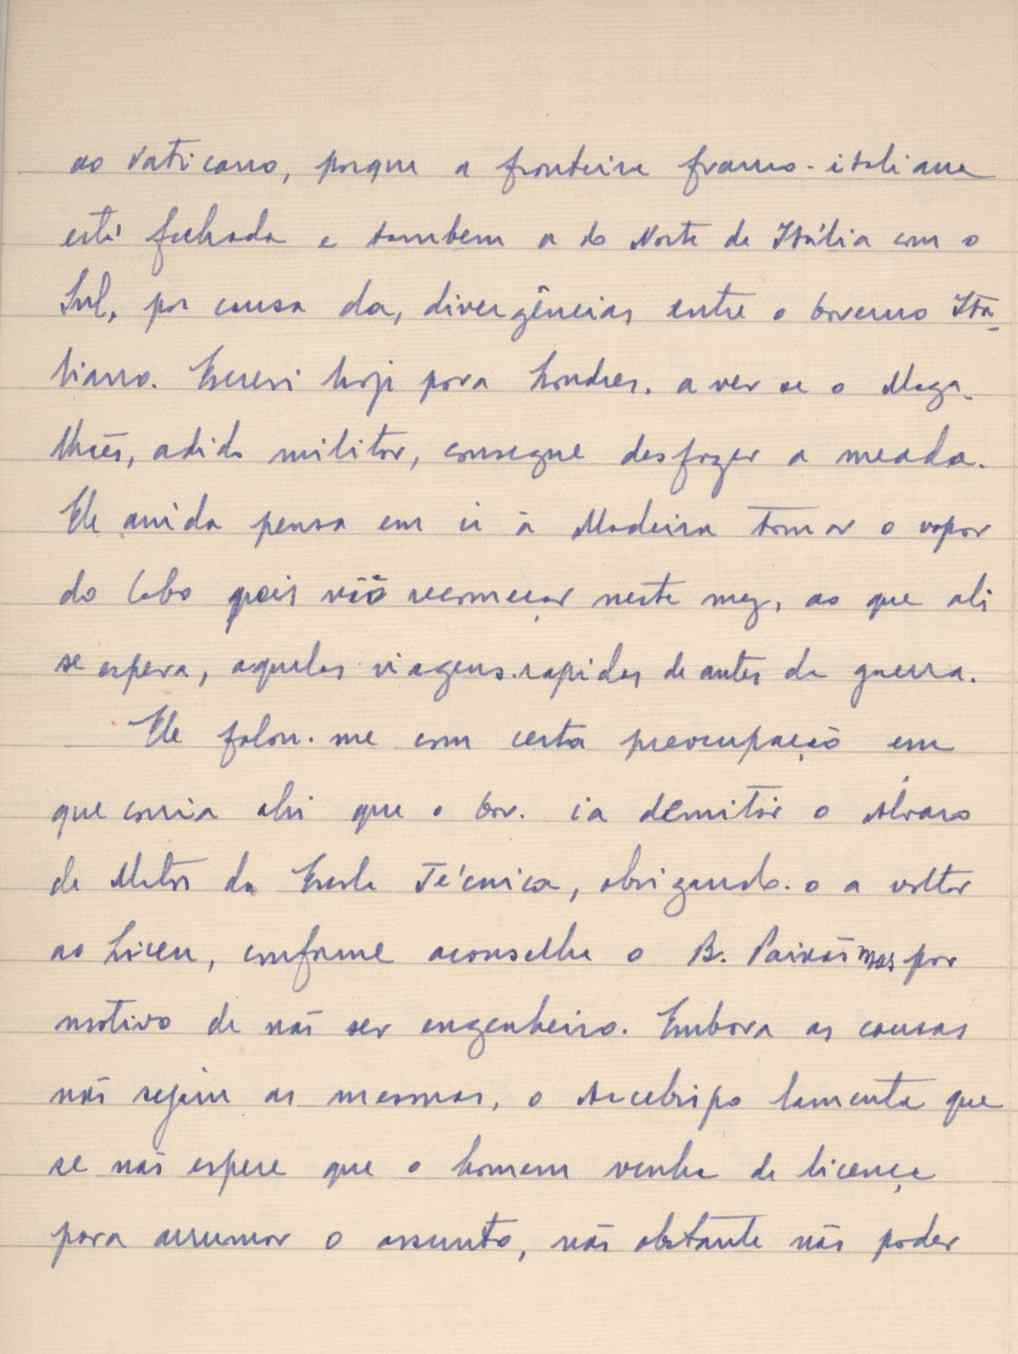 ao Vaticano, porque a fronteira franco-italiana
está fechada e tambem a do Norte de Itália com o
Sul, por causa das divergências entre o Governo Ita-
liano. Escrevi hoje para Londres, a ver se o Maga-
lhães, adido militar, consegue desfazer a meada.
Ele ainda pensa em ir à Madeira tomar o vapor
do Cabo pois vão recomeçar neste mez, ao que ali
se espera, aquelas viagens rapidas de antes da guerra.
Ele falou-me com certa preocupação em
que corria ahi que o Gov. ia demitir o Álvaro
de Matos da Escola Técnica, obrigando-o a voltar
ao Liceu, conforme aconselha o B. Paixão mas por
motivo de não ser engenheiro. Embora as causas
não sejam as mesmas, o Arcebispo lamenta que
se não espere que o homem venha de licença
para arrumar o assunto, não obstante não poder